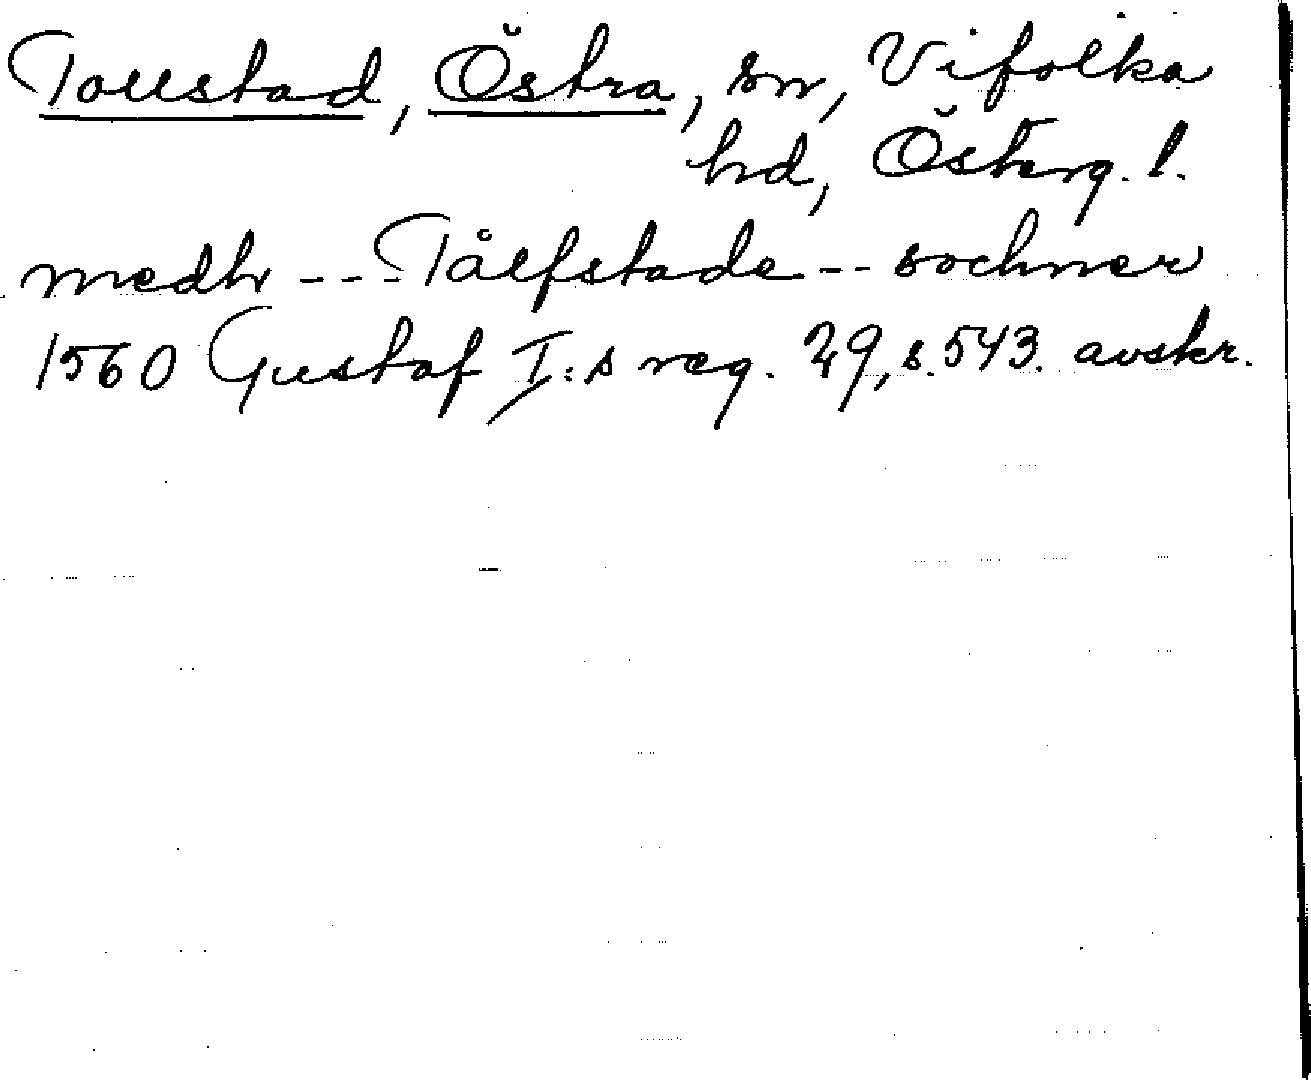 Tollstad, Östra, sn, Vifolka
hd, Österg. l.
medh --- Tålfstade -- sochner
1560 Gustaf I:s reg. 29, s. 543. avskr.